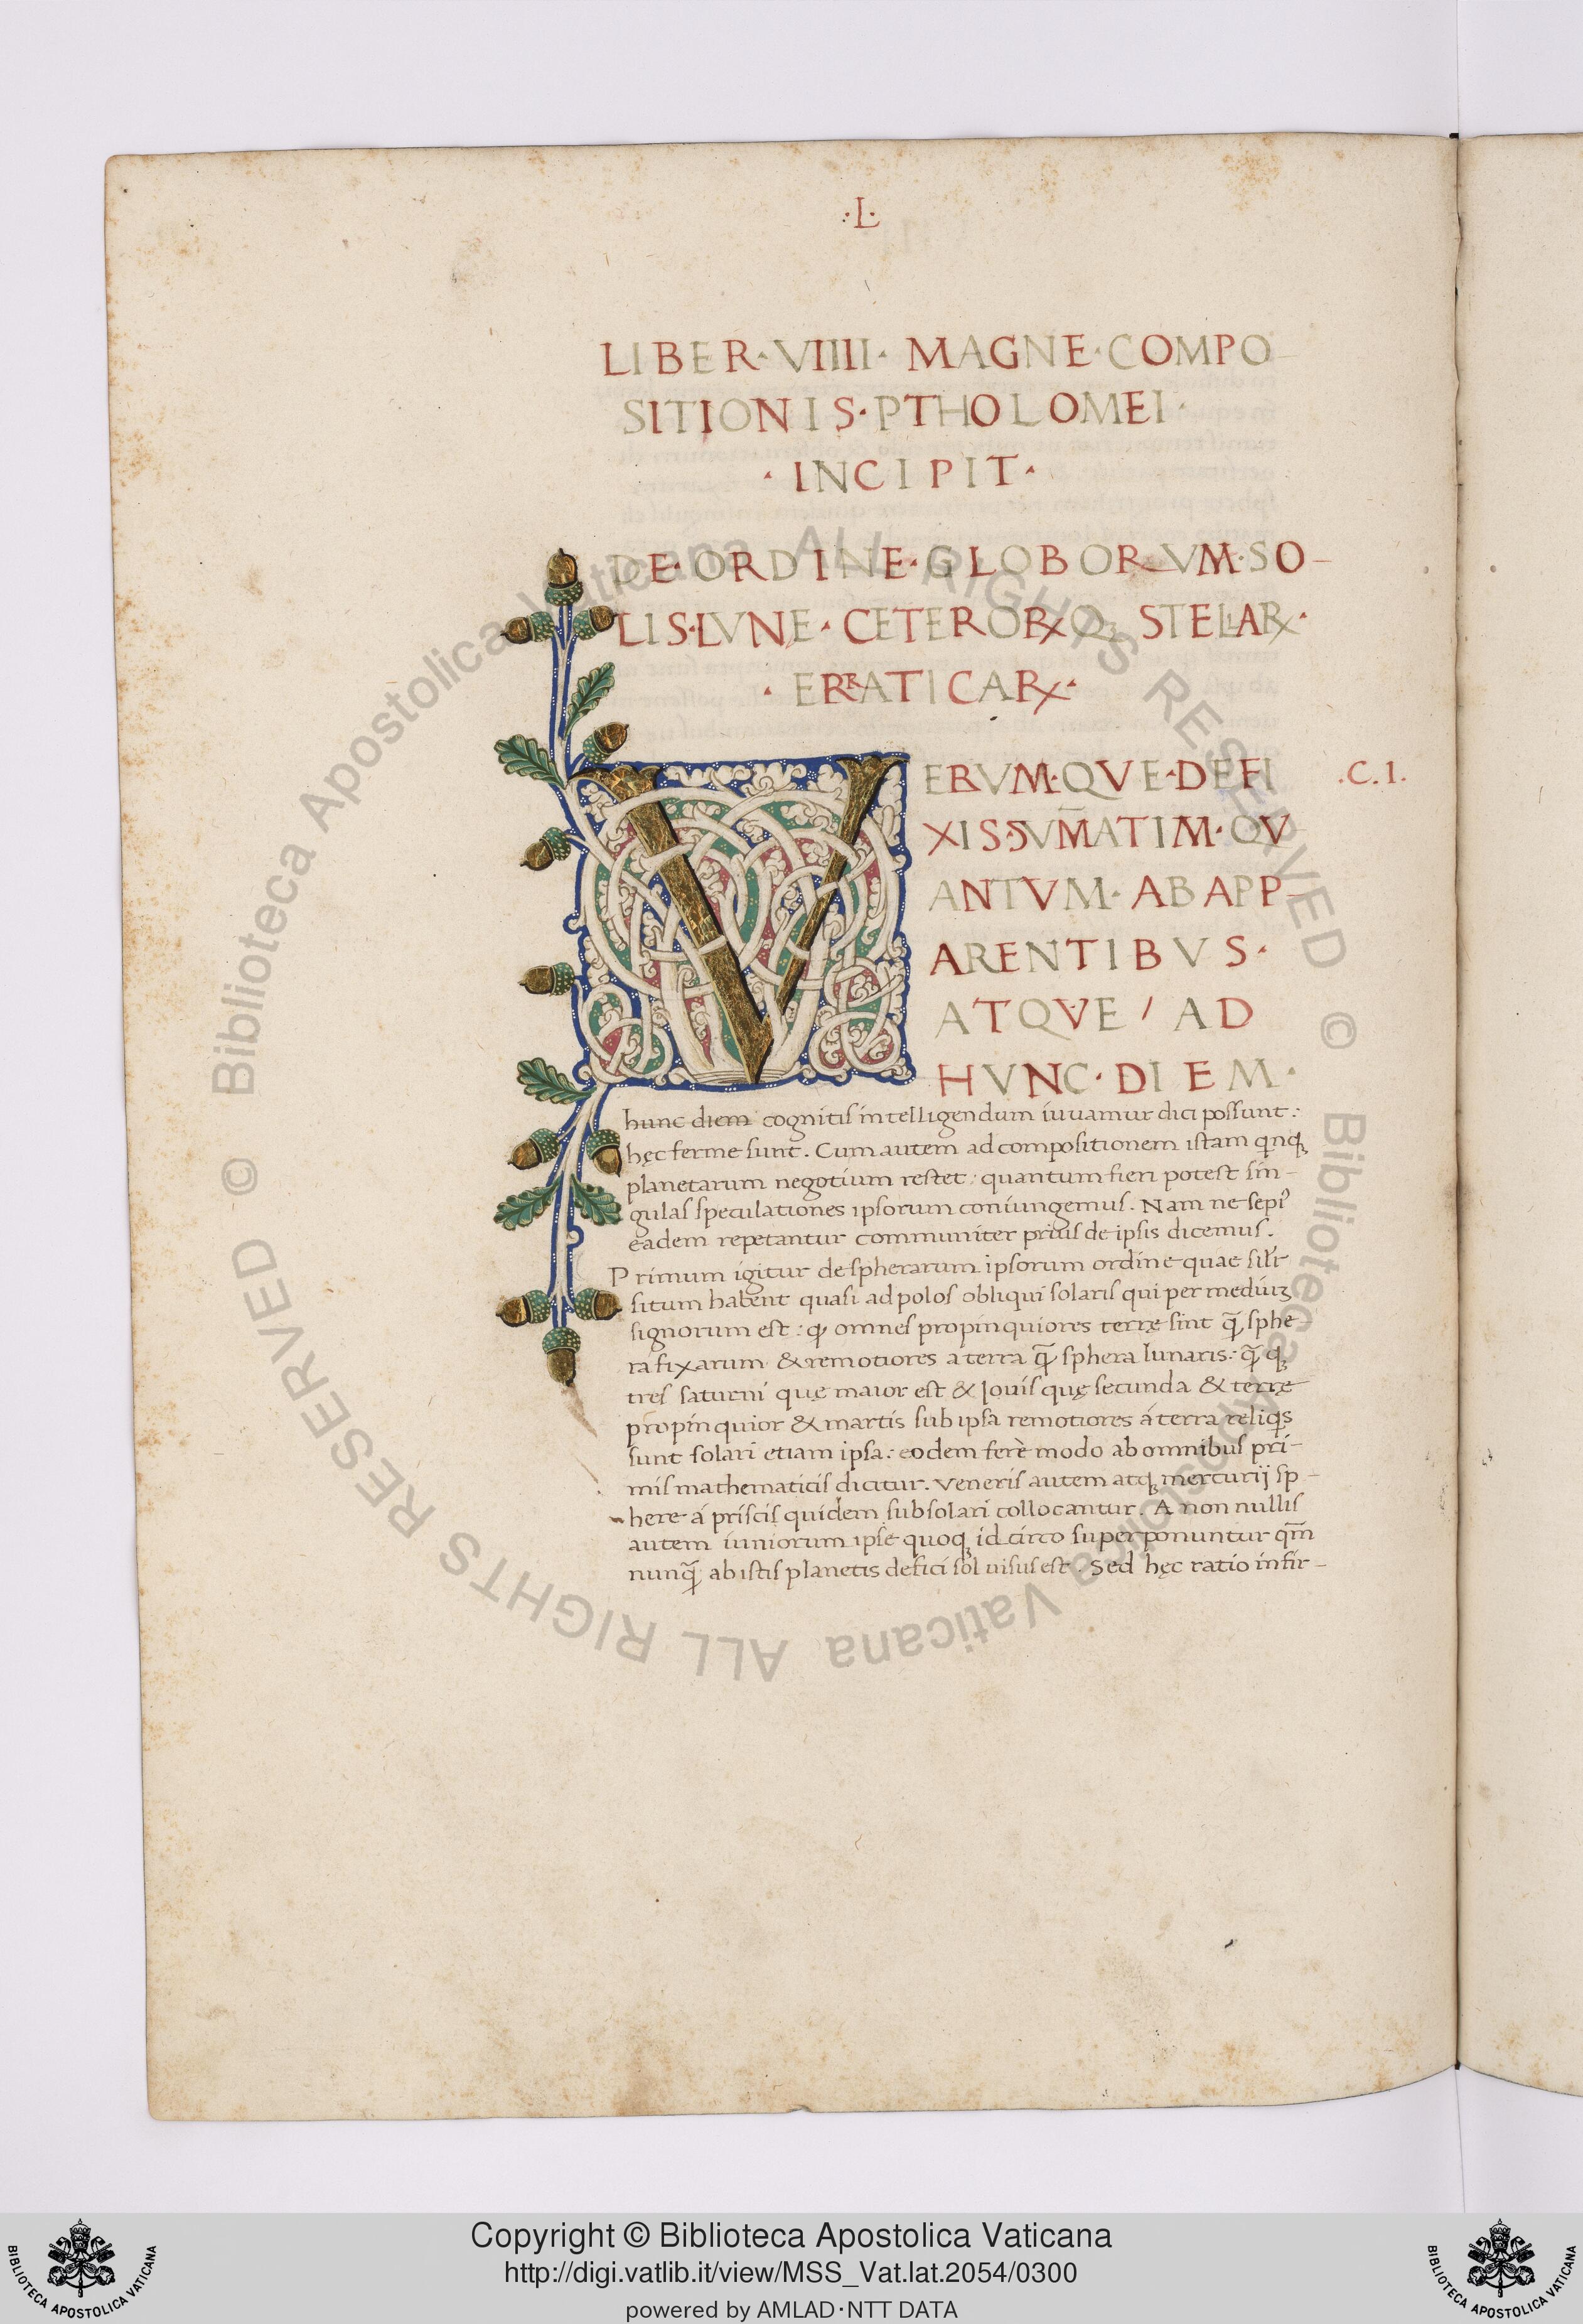 .L.
LIBER · VIIII · MAGNE · COMPO
SITIONIS · PTHOLOMEI ·
· INCIPIT ·
DE · ORDINE · GLOBORVM · SO-
LIS · LVNE · CETERORꝜQꝫ STELLARꝜ ·
· ERRATICARꝜ ·
VERVM · QVE · DEFI .C.1.
XIS SVM̅ATIM · QV
ANTVM · AB APP-
ARENTIBVS ·
ATQVE / AD
HVNC · DIEM ·
hunc diem cognitis intelligendum iuvamur dici possunt :
hęc ferme sunt . Cum autem ad compositionem istam qnqꝫ
planetarum negotium restet : quantum fieri potest sin-
gulas speculationes ipsorum coniungemus . Nam ne sepiꝰ
eadem repetantur communiter prius de ipsis dicemus .
Primum igitur de spherarum ipsorum ordine quae silr
situm habent quasi ad polos obliqui solaris qui per mediuꝫ
signorum est : ꝙ omnes propinquiores terrę sint q̃ sphe
ra fixarum & remotiores a terra q̃ sphera lunaris : q̃ qꝫ
tres saturni quę maior est & Iovis quę secunda & terrę
propinquior & martis sub ipsa remotiores á terra reliqs
sunt solari etiam ipsa : eodem ferè modo ab omnibus pri-
mis mathematicis dicitur . Veneris autem atqꝫ mercurij sp-
here á priscis quidem sub solari collocantur . A non nullis
autem iuniorum ipse quoqꝫ id circo superponuntur qm̅
nunq̃ ab istis planetis defici sol visus est . Sed hęc ratio infir-
© Biblioteca Apostolica Vaticana ALL RIGHTS RESERVED © Biblioteca Apostolica Vaticana ALL RIGHTS RESERVED
BIBLIOTECA APOSTOLICA VATICANA
Copyright © Biblioteca Apostolica Vaticana
http://digi.vatlib.it/view/MSS_Vat.lat.2054/0300
powered by AMLAD·NTT DATA
BIBLIOTECA APOSTOLICA VATICANA